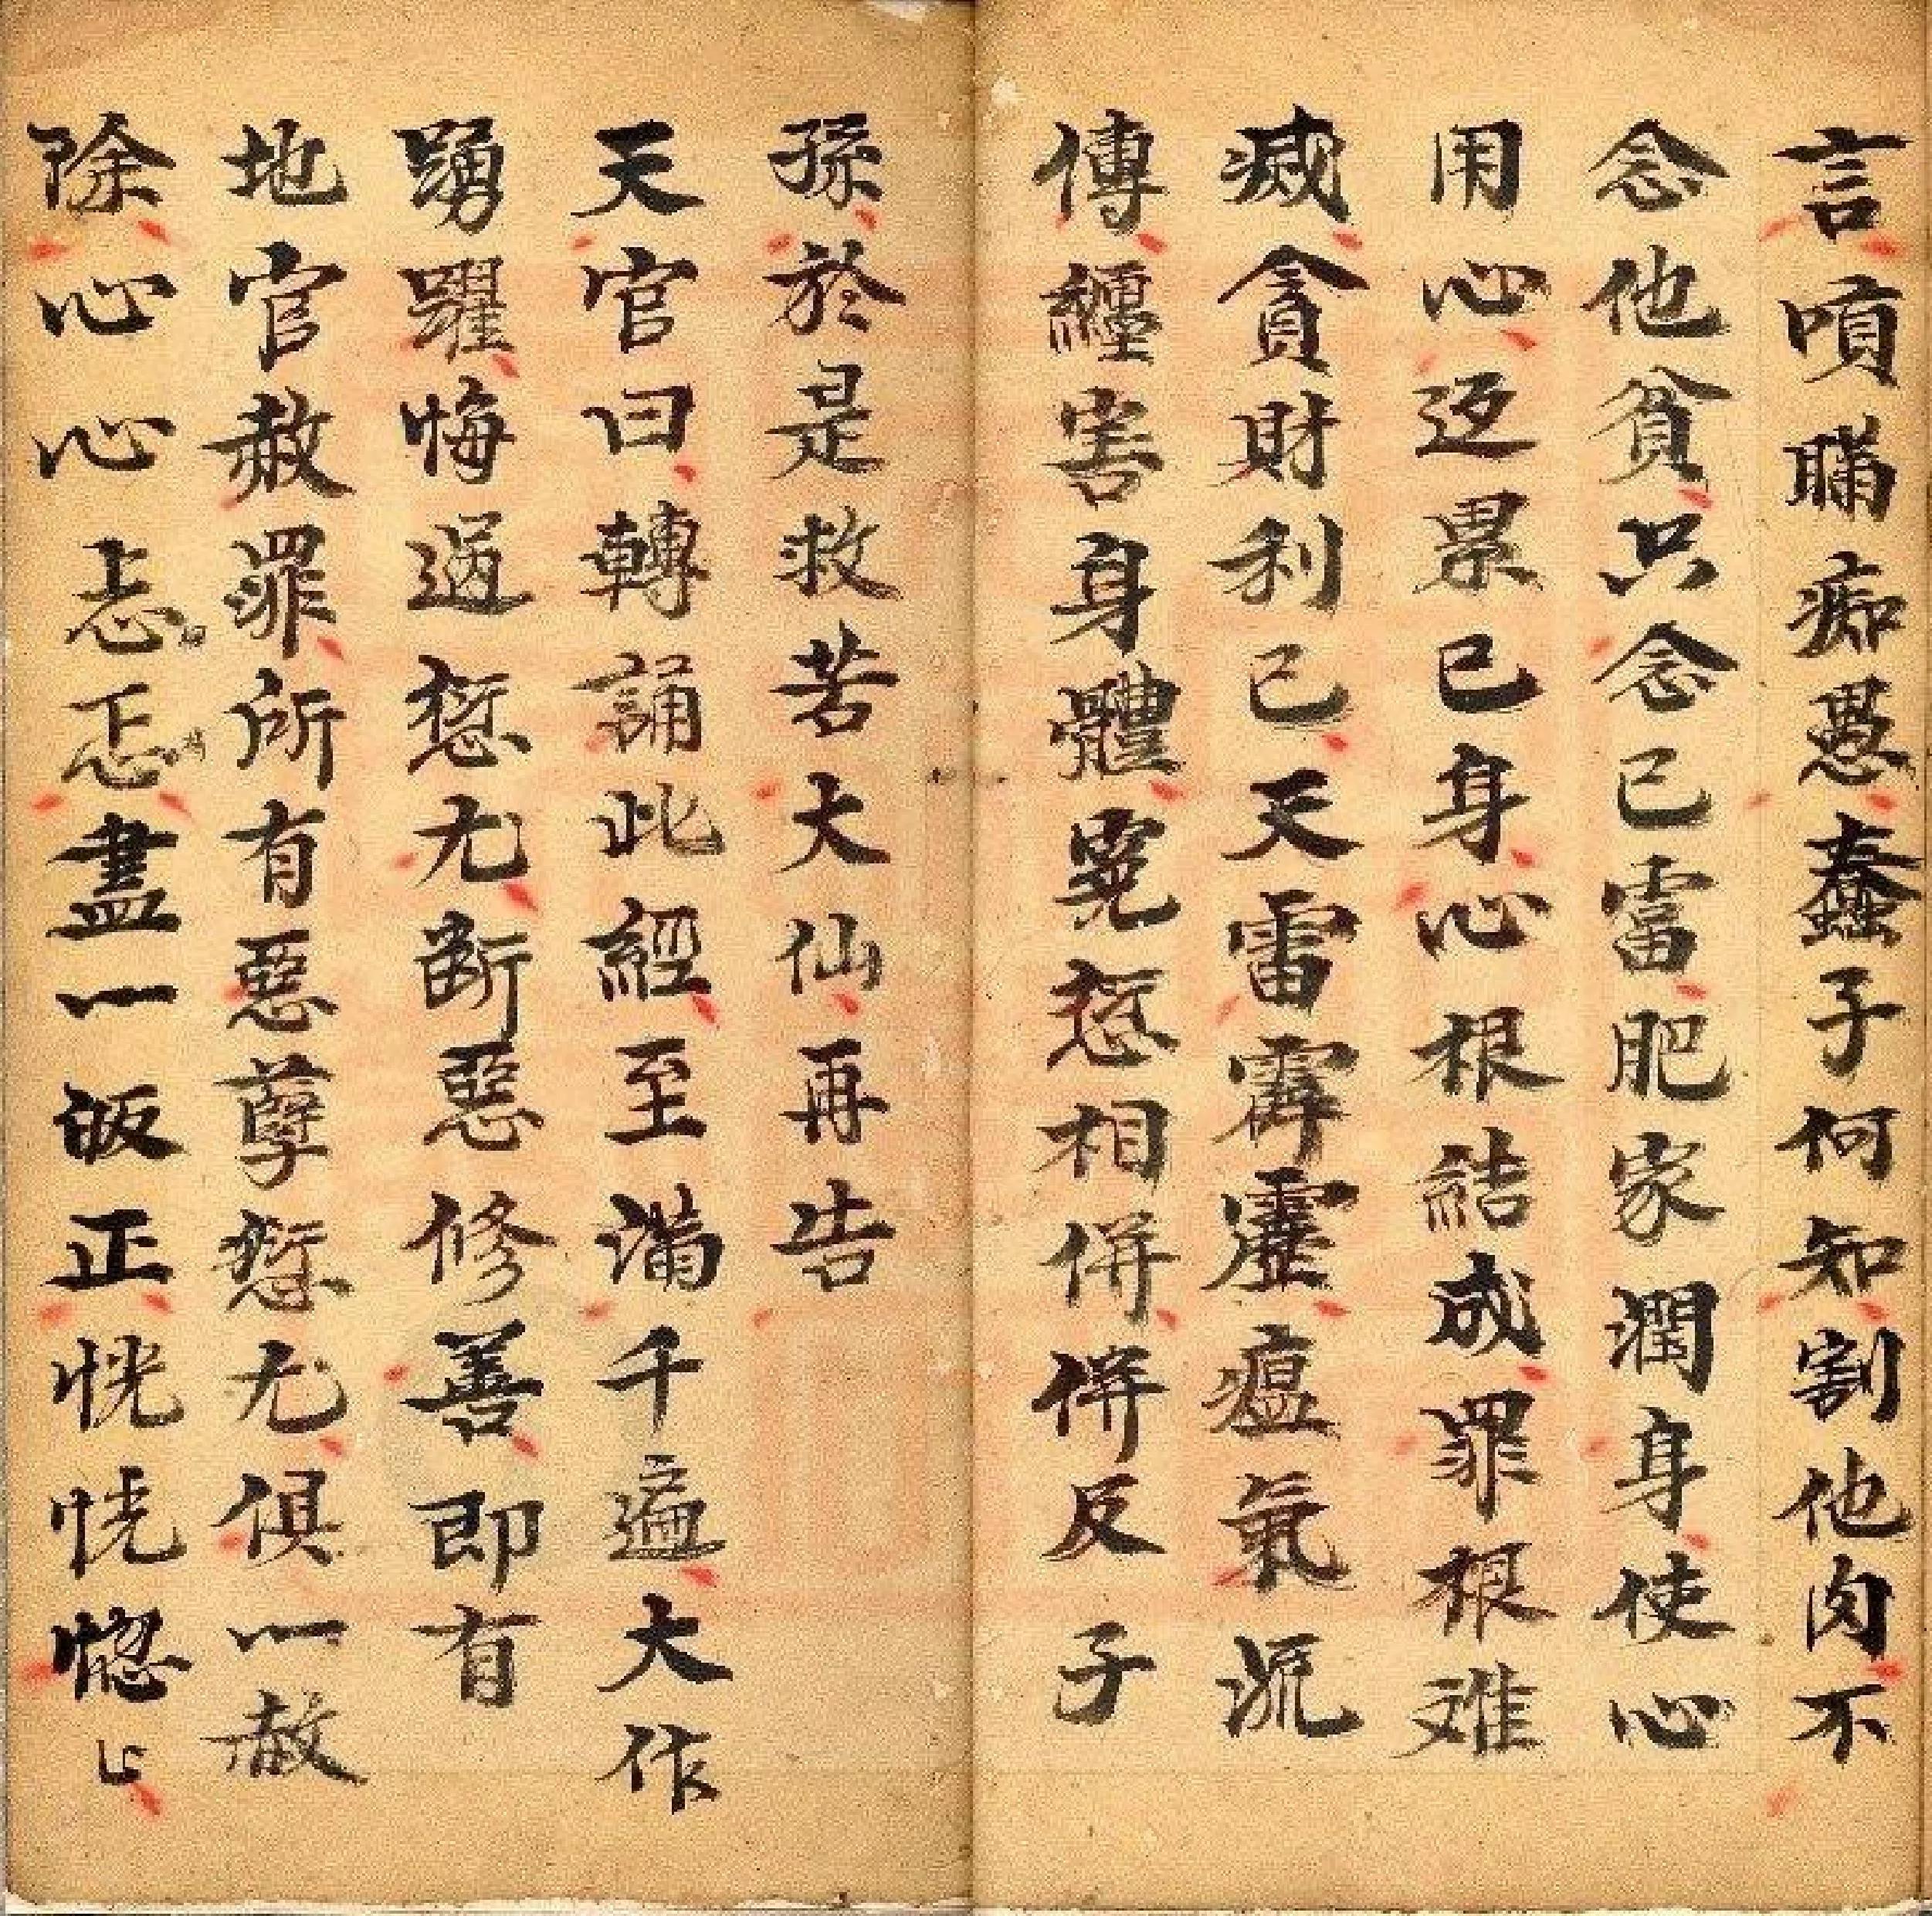 言嗔瞞痴愚蠢子何知割他肉不
念他貧只念己富肥家潤身使心
用心返累己身心根結成罪根难
滅貪財利己天雷霹靂瘟氣流
傳纏害身體冤愆相併併反子
孫於是救苦大仙再告
天官曰轉誦此經至滿千遍大作
踴躍悔過愆尤断惡修善即有
地官赦罪所有惡孽愆尤俱一赦
除心心忐忑盡一皈正恍恍惚